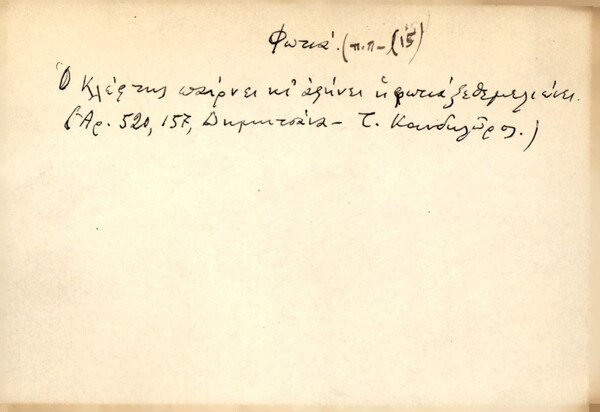 Φωτιά. (π.π- (15)
Ὁ Κλέφτης παίρνει κι' ἀφήνει ἡ φωτιά ξεθεμελιώνει.
(Ἀρ. 520, 157, Δημητσάνα - Τ. Κανδηλῶρος.)